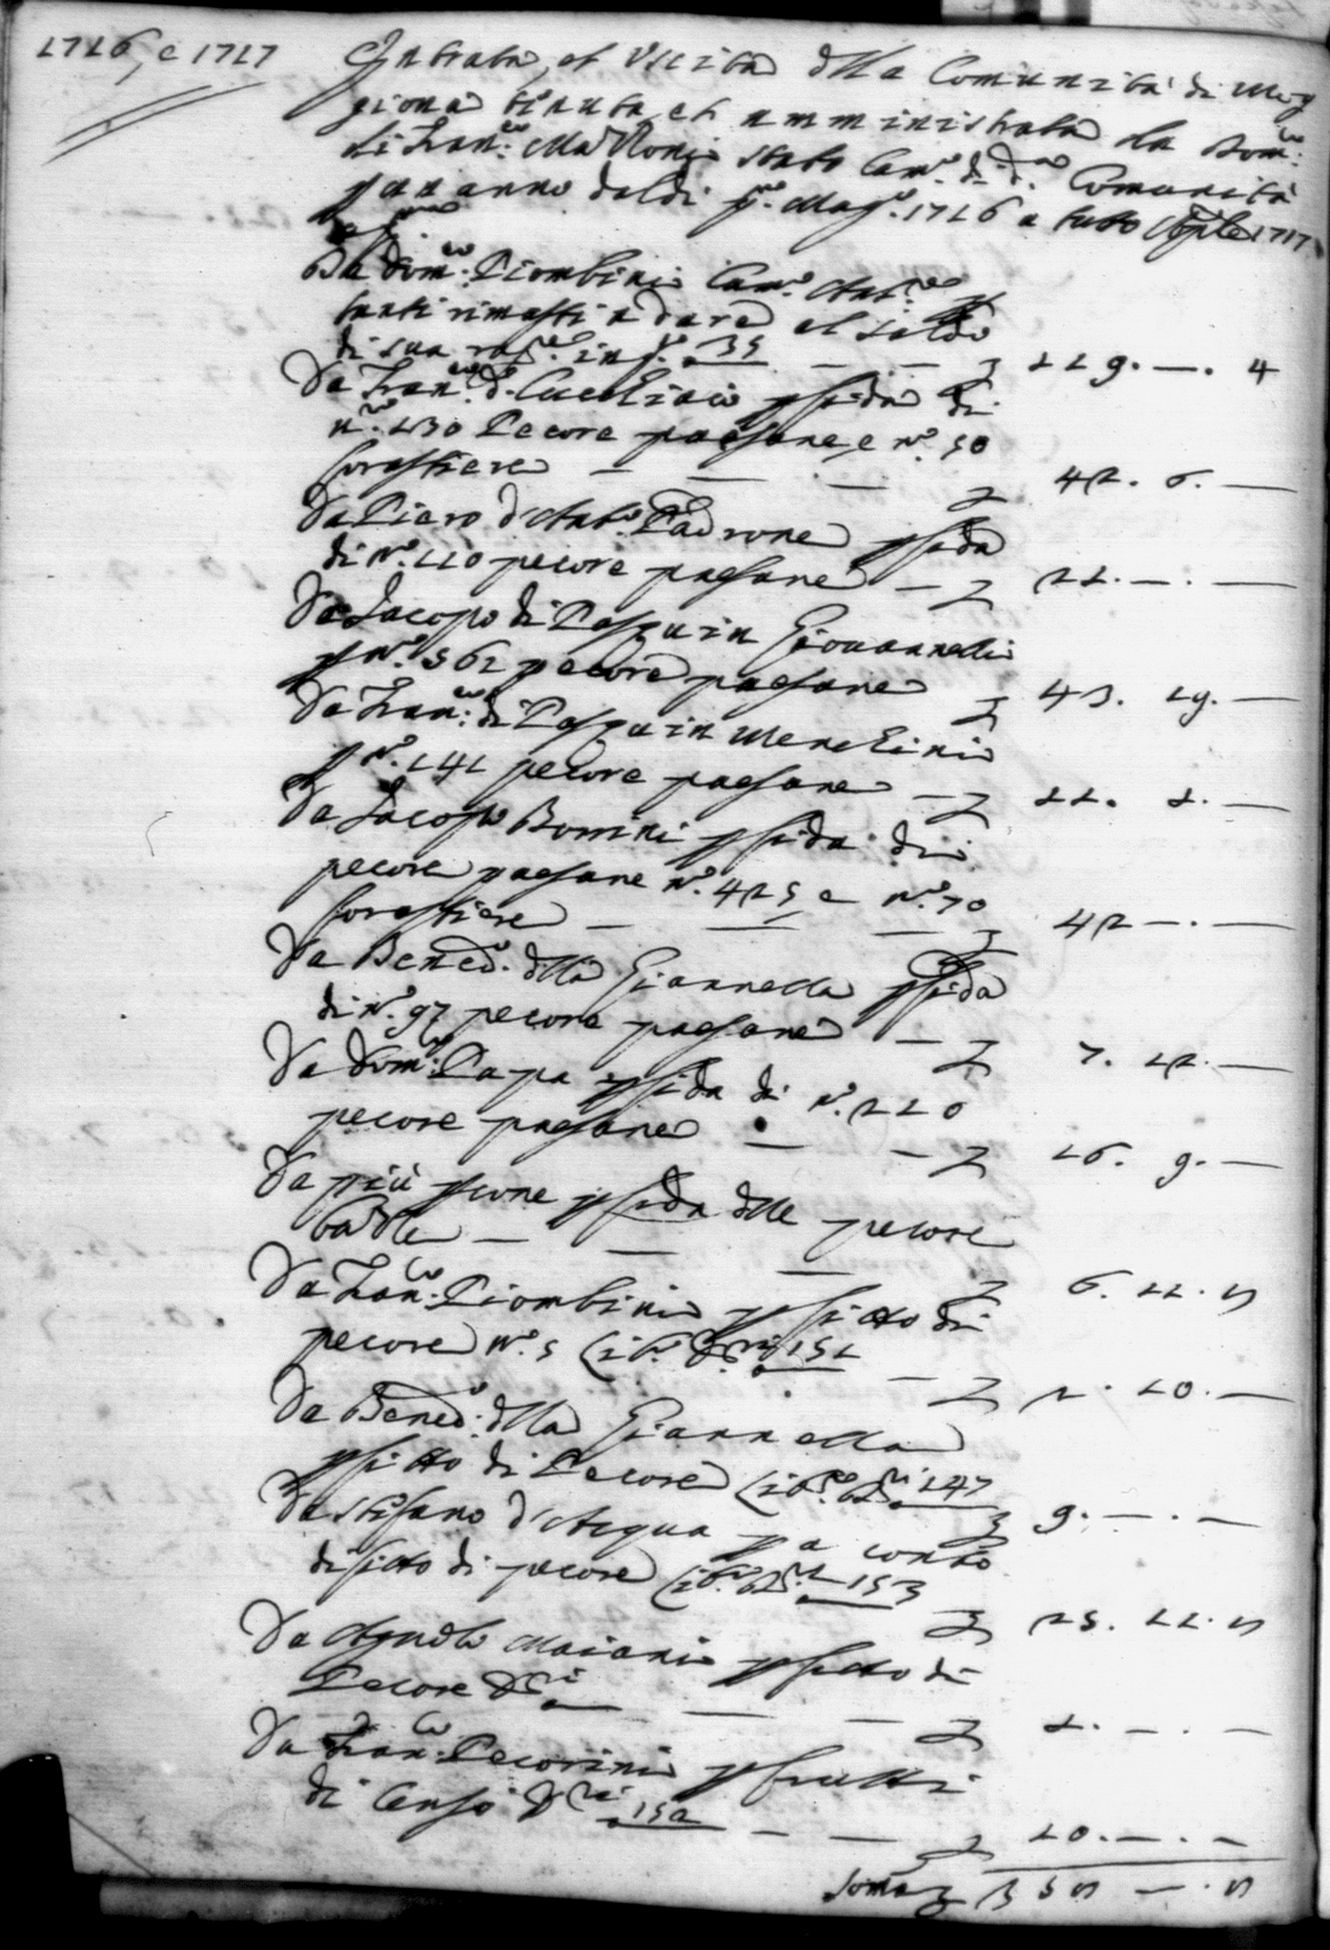 1716, e 1717
Entrata, et Uscita della Comunità di Mog
giona tenuta, et amministrata da Dom:co
di Fran:co Ma stato Cam:o di d:a Comunità
p un anno dal dì p:mo Mag:o 1716 a tutto Aple 1717
Da Dom:co Piombini Cam:o Ant:co p
tanti rimasti a dare al saldo
di sua rag:ne in q:o 35 — — £ 119. —. 4
Da Fran:co d. p fida di
n:ro 130 Pecore paesane, e N:o 50
forastiere — — — £ 42. 6. —
Da Piero d'Ant:o Padrone p fida
di N:o 110 pecore paesane — £ 22. —. —
Da Jacopo di Pasquin Giovannelli
p N:o 562 pecore paesane £ 43. 19. —
Da Fran:co di Pasquin Menchini
p N:o 141 pecore paesane — £ 11. 1. —
Da Jacopo Bonini p fida di
pecore paesane N:o 425 e N:o 70
forastiere — — — £ 42 —. —
Da Bened:o della Giannella p fida
di N:o 97 pecore paesane — £ 7. 12. —
Da Dom:co Papa p fida di N:o 210
pecore paesane — — £ 16. 9. —
Da più p fida delle pecore
— — — £ 6. 11. 8
Da Fran:co Piombini p fitto di
pecore N:o 5 151 — £ 2. 10. —
Da Bened:o della Giannella
p fitto di Pecore 147 £ 9. —. —
Da Stefano d'Acqua p a conto
di fitto di pecore 153 £ 25. 11. 8
Da Agnolo Maiani p fitto di
Pecore — — — £ 1. —. —
Da Fran:co Pecorini p frutti
di Censo 152 — — £ 10. —. —
Soma £ 358 —. 8